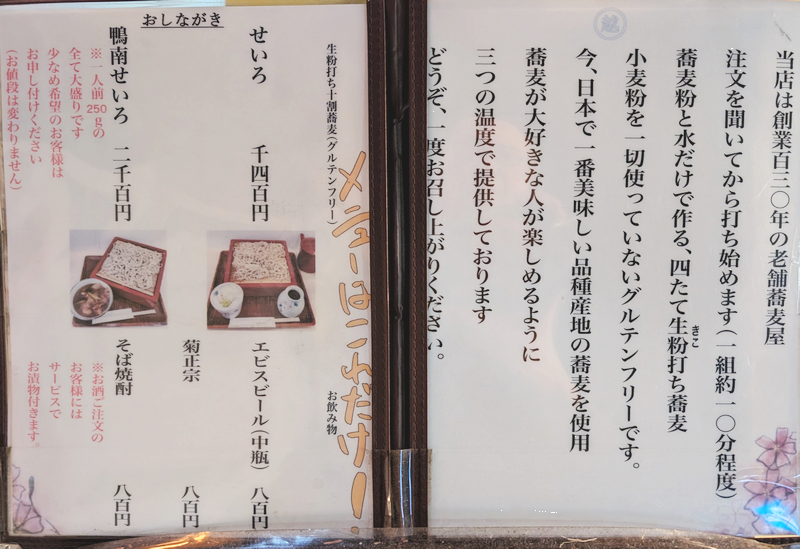 当店は創業百三〇年の老舗蕎麦屋
注文を聞いてから打ち始めます(一組約一〇分程度)
蕎麦粉と水だけで作る、四たて生粉打ち蕎麦
きこ
小麦粉を一切使っていないグルテンフリーです。
今、日本で一番美味しい品種産地の蕎麦を使用
蕎麦が大好きな人が楽しめるように
三つの温度で提供しております
どうぞ、一度お召し上がりください。
おしながき
生粉打ち十割蕎麦(グルテンフリー)
メニューはこれだけ!
せいろ 千四百円
鴨南せいろ 二千百円
※一人前250gの
全て大盛りです
少なめ希望のお客様は
お申し付けください
(お値段は変わりません)
お飲み物
ヱビスビール(中瓶) 八百円
菊正宗 八百円
そば焼酎 八百円
※お酒ご注文の
お客様には
サービスで
お漬物付きます。